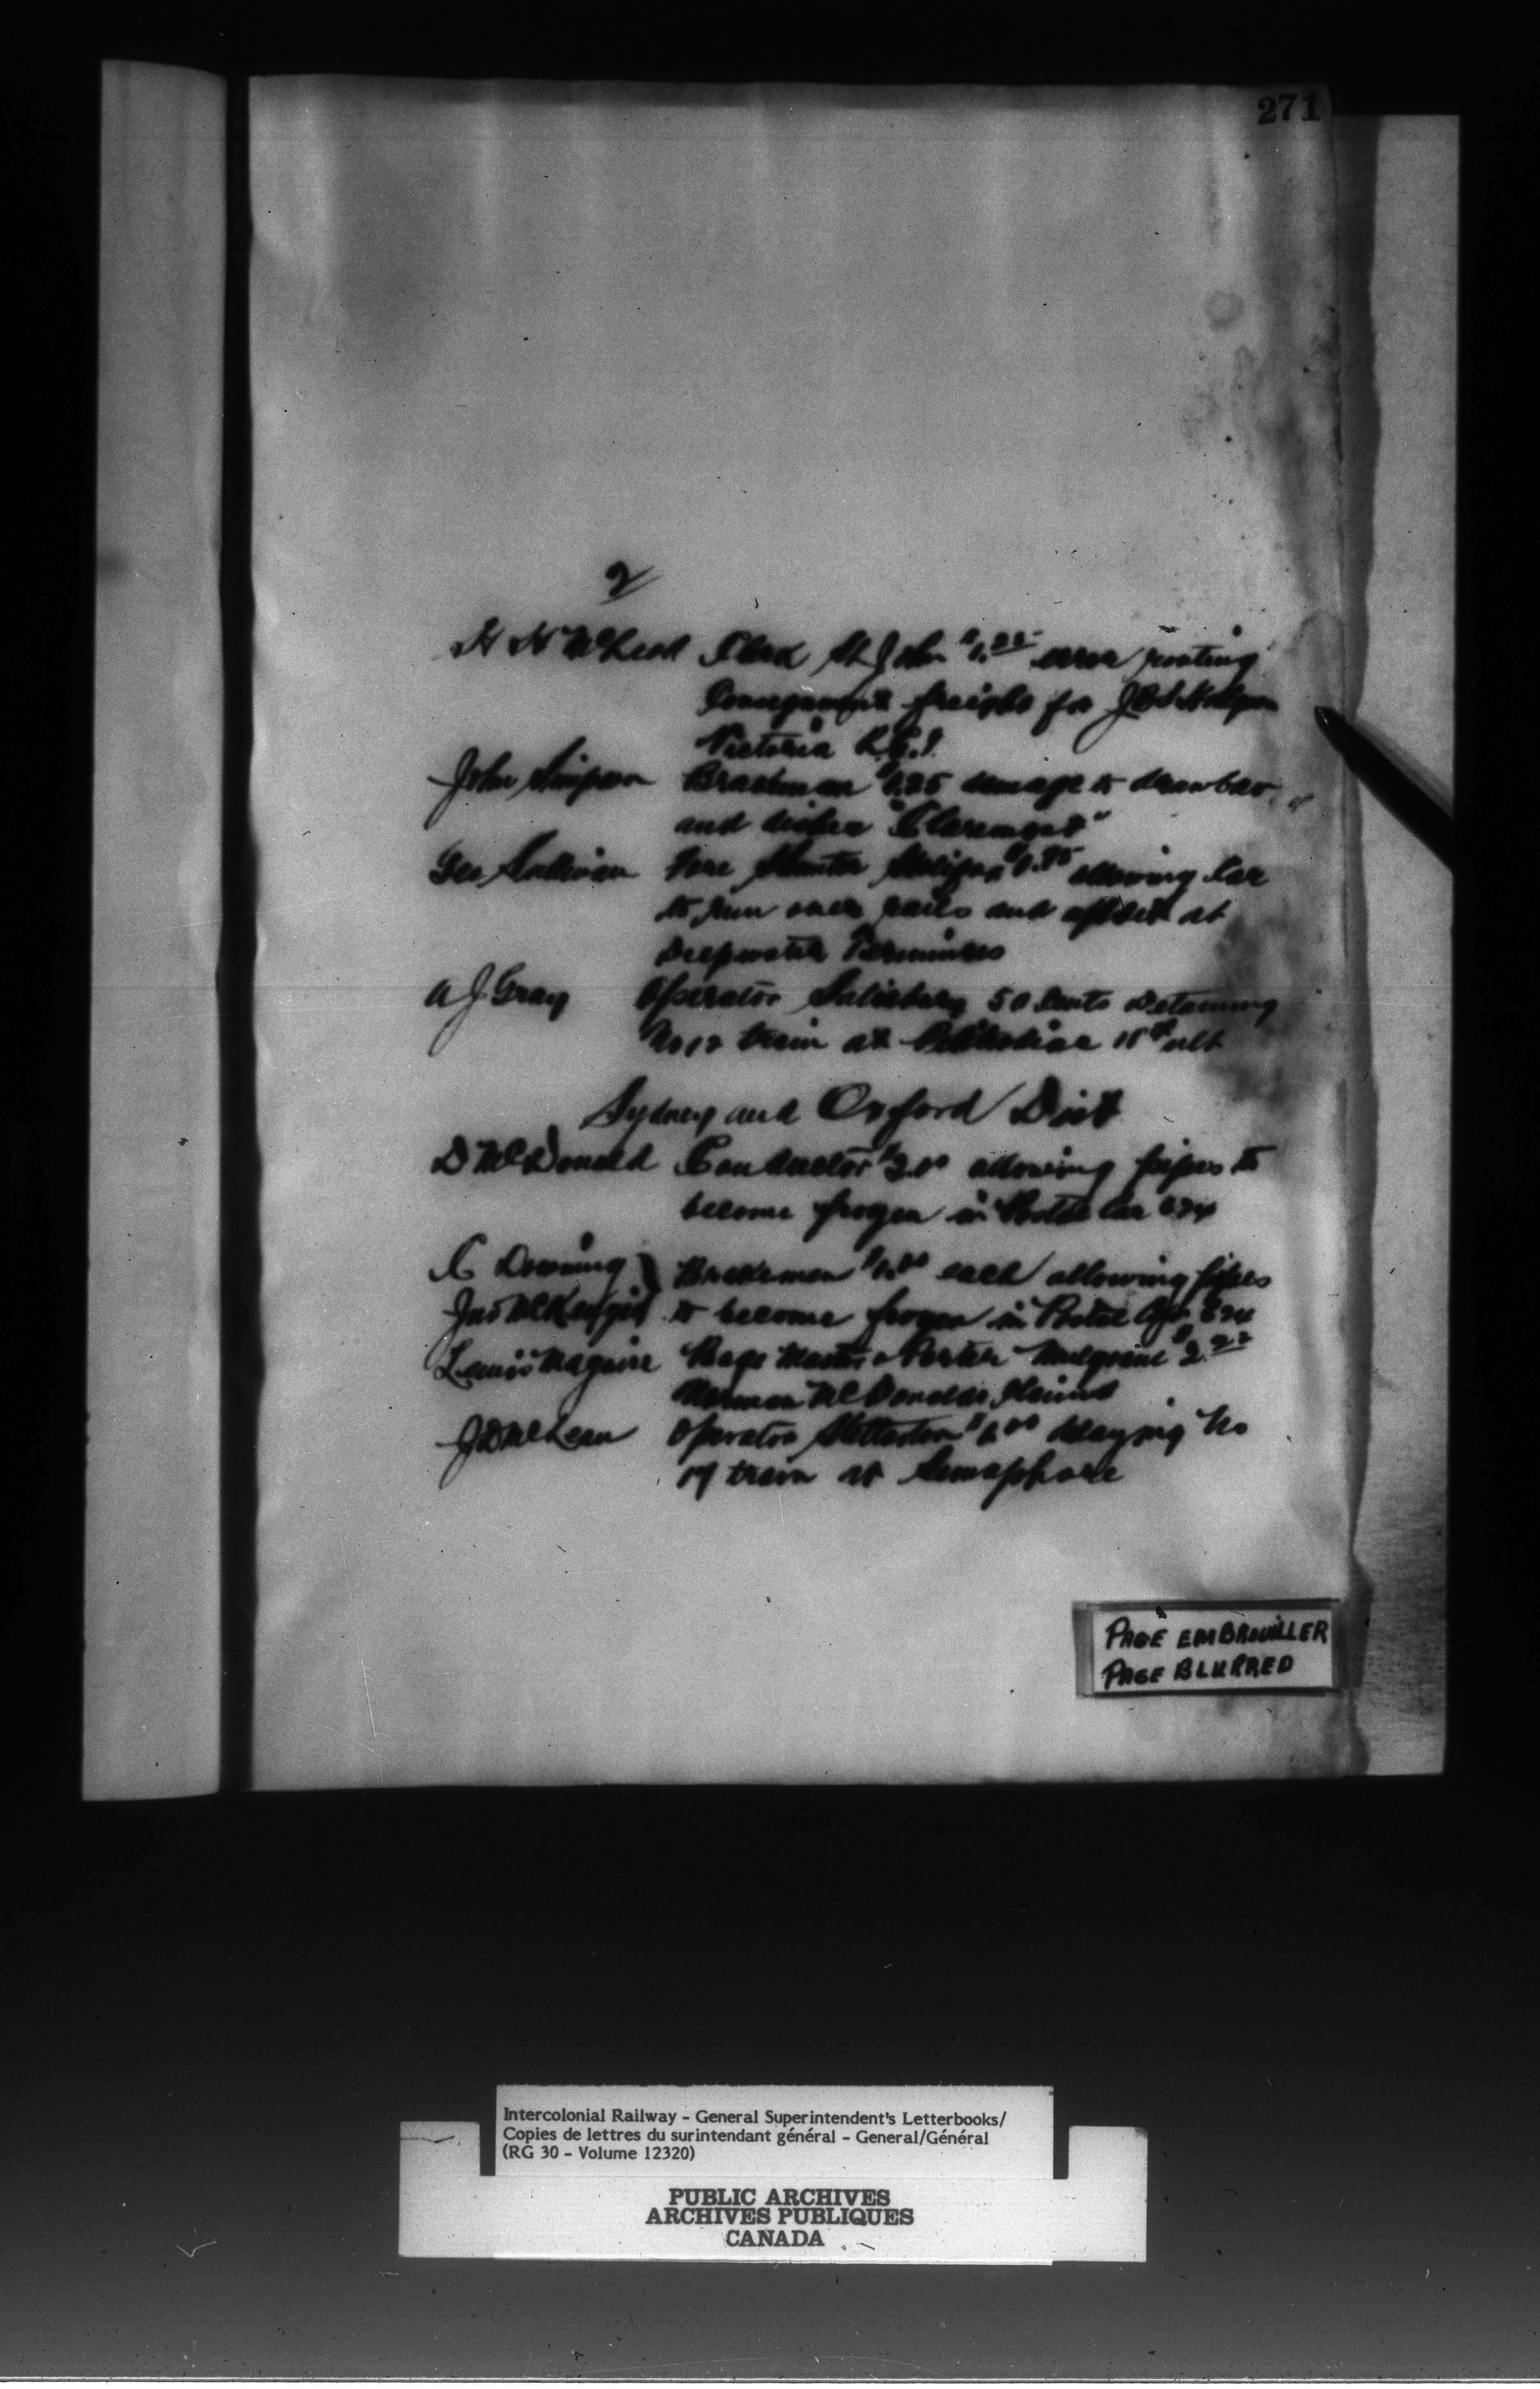 271
2
H H McLead Clerk St John $1. error routing
freight for
Victoria P.E.I.
John Simpson Brakeman $1.25 damage to drawbar
and "Claremont"
Geo Sullivan Fore Shunter Halifax allowing Car
to run over rails and upset at
Deepwater Terminus
A J Gray Operator Salisbury 50 Cents Detaining
No 12 train at Petitcodiac ult
Sydney and Oxford Dist
D McDonald Conductor allowing pipes to
become frozen in Postal Car
C Downing Brakeman $1.00 each allowing pipes
Jno McKenzie to become frozen in Postal
Lewis Maguire Bage Master & Porter Mulgrave $2.
Norman McDonalds Claim
J D McLean Operator Stellarton $1.00 delaying No
train at Semaphore
PAGE EMBROUILLER
PAGE BLURRED
Intercolonial Railway - General Superintendent's Letterbooks/
Copies de lettres du surintendant général - General/Général
(RG 30 - Volume 12320)
PUBLIC ARCHIVES
ARCHIVES PUBLIQUES
CANADA